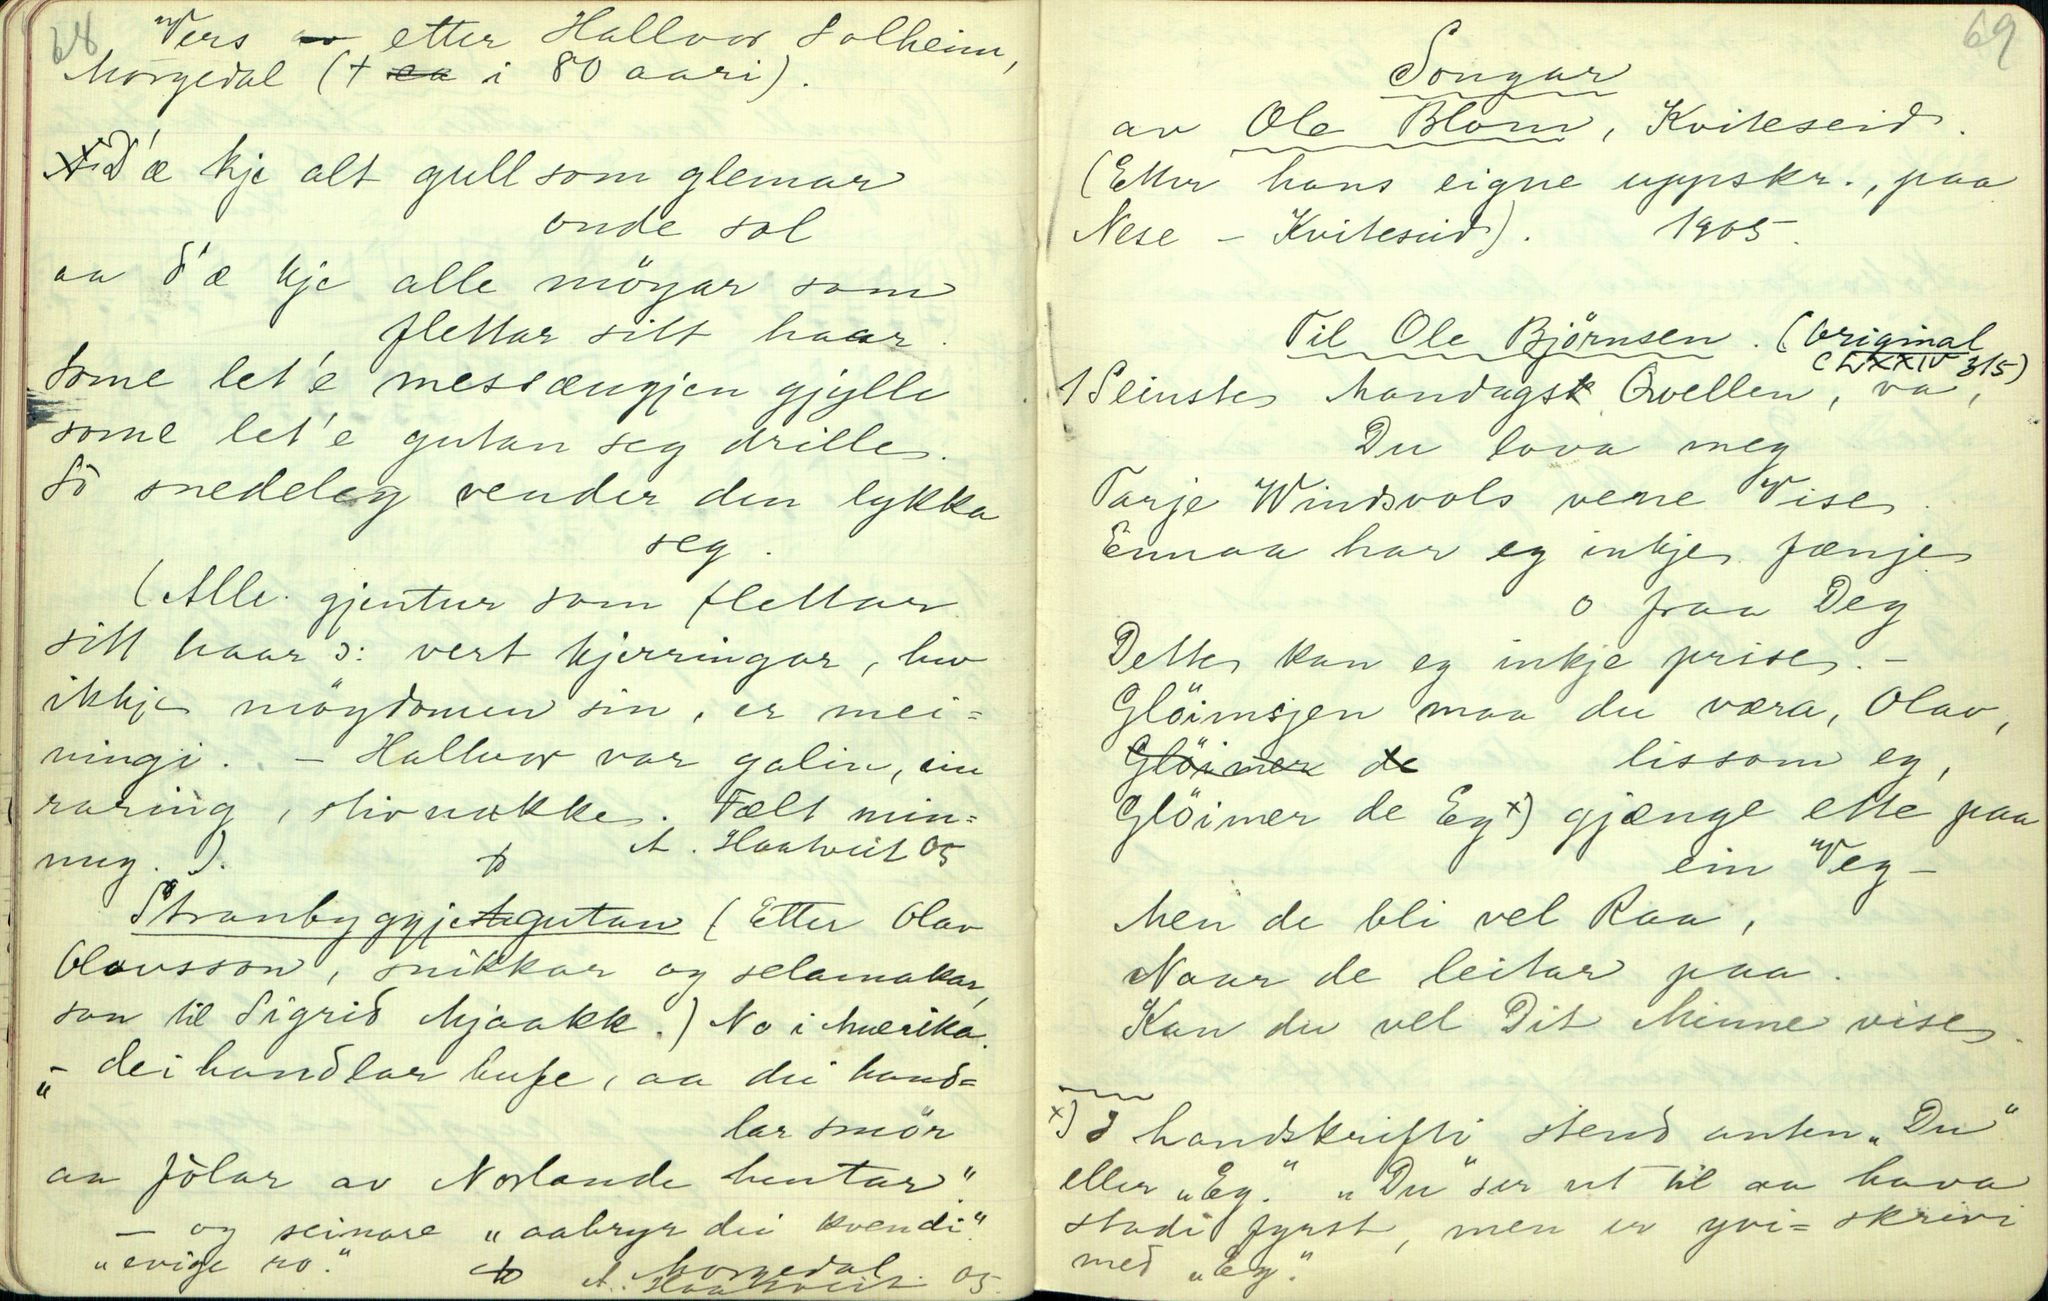 68
Vers etter Hallvor Solheim,
Morgedal (+ ca i 80 aari).
D'æ kje alt gull som glemar
onde sol
aa d'æ kje alle möyar som
flettar sitt haar.
Some let'e messængjen gjylle
some let'e gutan seg drille.
So snedeleg vender den lykka
seg.
(Alle gjentur som flettar
sitt haar ɔ: vert kjerringar, hev
ikkje möydomen sin, er mei=
ningi. – Hallvor var galin, ein
raring, stivnakke. Fælt min=
nug.).
A. Haatveit 05
Stranbyggjegutan (Etter Olav
Olavsson, snikkar og selamakar,
son til Sigrid Mjaakk.) No i Amerika.
"– dei handlar hufe, aa dei hand=
lar smör
aa fölar av Norlande hentar".
– og seinare "aabryr dei kvendi"
"evige ro."
Morgedal.
A. Haatveit. 05.
69
Songar
av Ole Blom, Kviteseid.
(Etter hans eigne uppskr., paa
Nese – Kviteseid). 1905.
Til Ole Björnsen. (Original
(LXXIV 315)
1 Seinste Mandagsk Qvellen, va,
Du lova meg
Tarje Windsvols vene Vise.
Ennaa har eg inkje fænje
o fraa Deg
Dette kan eg inkje prise. –
Glöimsjen maa du væra, Olav,
Glöimer de lissom eg,
Glöimer de Eg x) gjænge ette paa
ein Veg –
Men de bli vel Raa,
Naar de leitar paa.
Kan du vel Dit Minne vise.
x) I handskrifti stend anten "Du"
eller "Eg." "Du" ser ut til aa hava
stadi fyrst, men er yvi= skrivi
med "Eg."